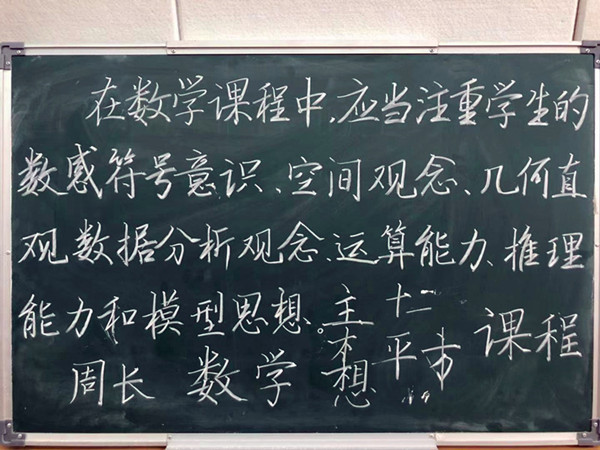 在数学课程中,应当注重学生的
数感符号意识、空间观念、几何直
观数据分析观念、运算能力、推理
能力和模型思想。主 十二 课程
平
周长 数学 想